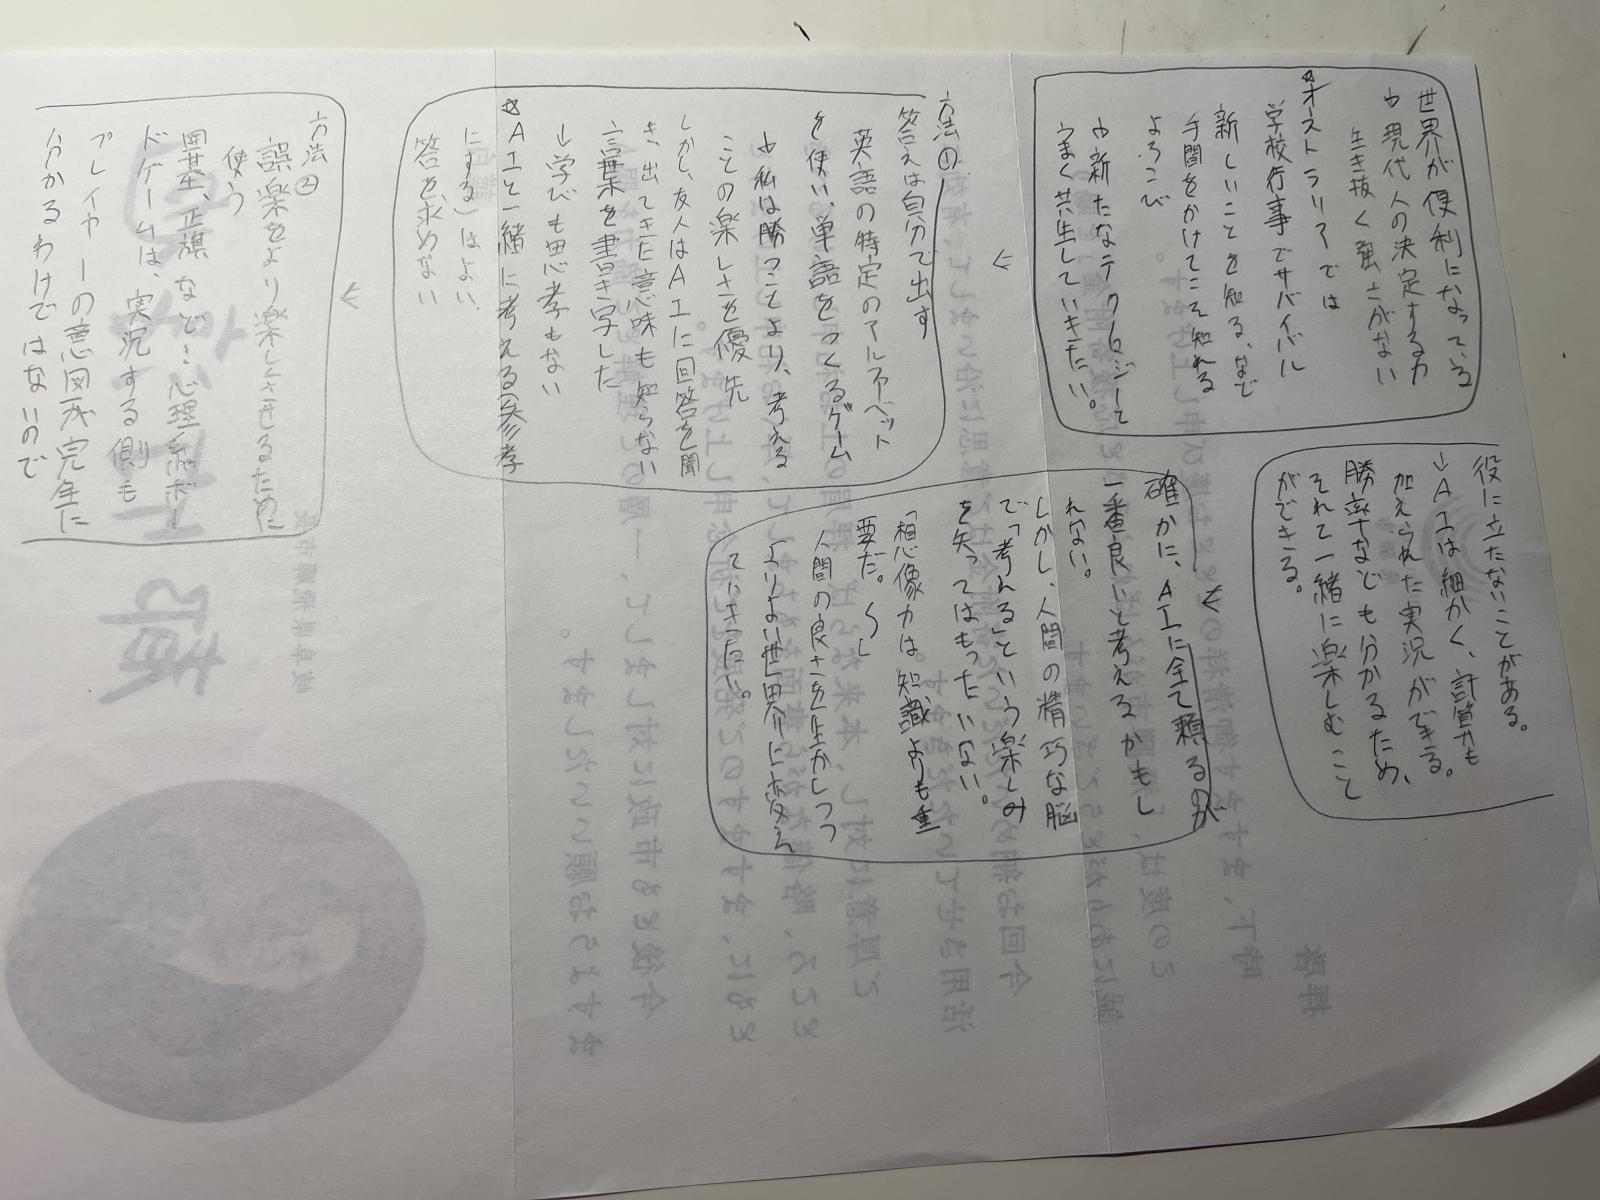 世界が便利になっている
→現代人の決定する力
生き抜く強さがない
☆オーストラリアでは
学校行事でサバイバル
新しいことを知る、など
手間をかけてこそ知れる
よろこび
→新たなテクノロジーて
うまく共生していきたい。
方法①
答えは自分で出す
英語の特定のアルファベット
を使い、単語をつくるゲーム
→私は勝つことより、考える
ことの楽しさを優先
しかし、友人はAIに回答を聞
き、出てきた意味も知らない
言葉を書き写した
→学びも思考もない
☆AIと一緒に考える(参考
にする)はよい、
答を求めない
方法②
誤楽をより楽しくさせるために
使う
囲基、正旗など…心理系ボー
ドゲームは実況する側も
プレイヤーの意図が完全に
分かるわけではないので
役に立たないことがある。
→AIは細かく、計算も
加えられた実況ができる。
勝率なども分かるため、
それて一緒に楽しむこと
ができる。
確かに、AIに全て頼るのが
一番良いと考えるかもし
れない。
しかし、人間の精巧な脳
で「考れる」という楽しみ
を失ってはもったいない。
「想像力は知識よりも重
要だ。」
人間の良さを生かしつつ
よりよい世界に変え
ていきたい。